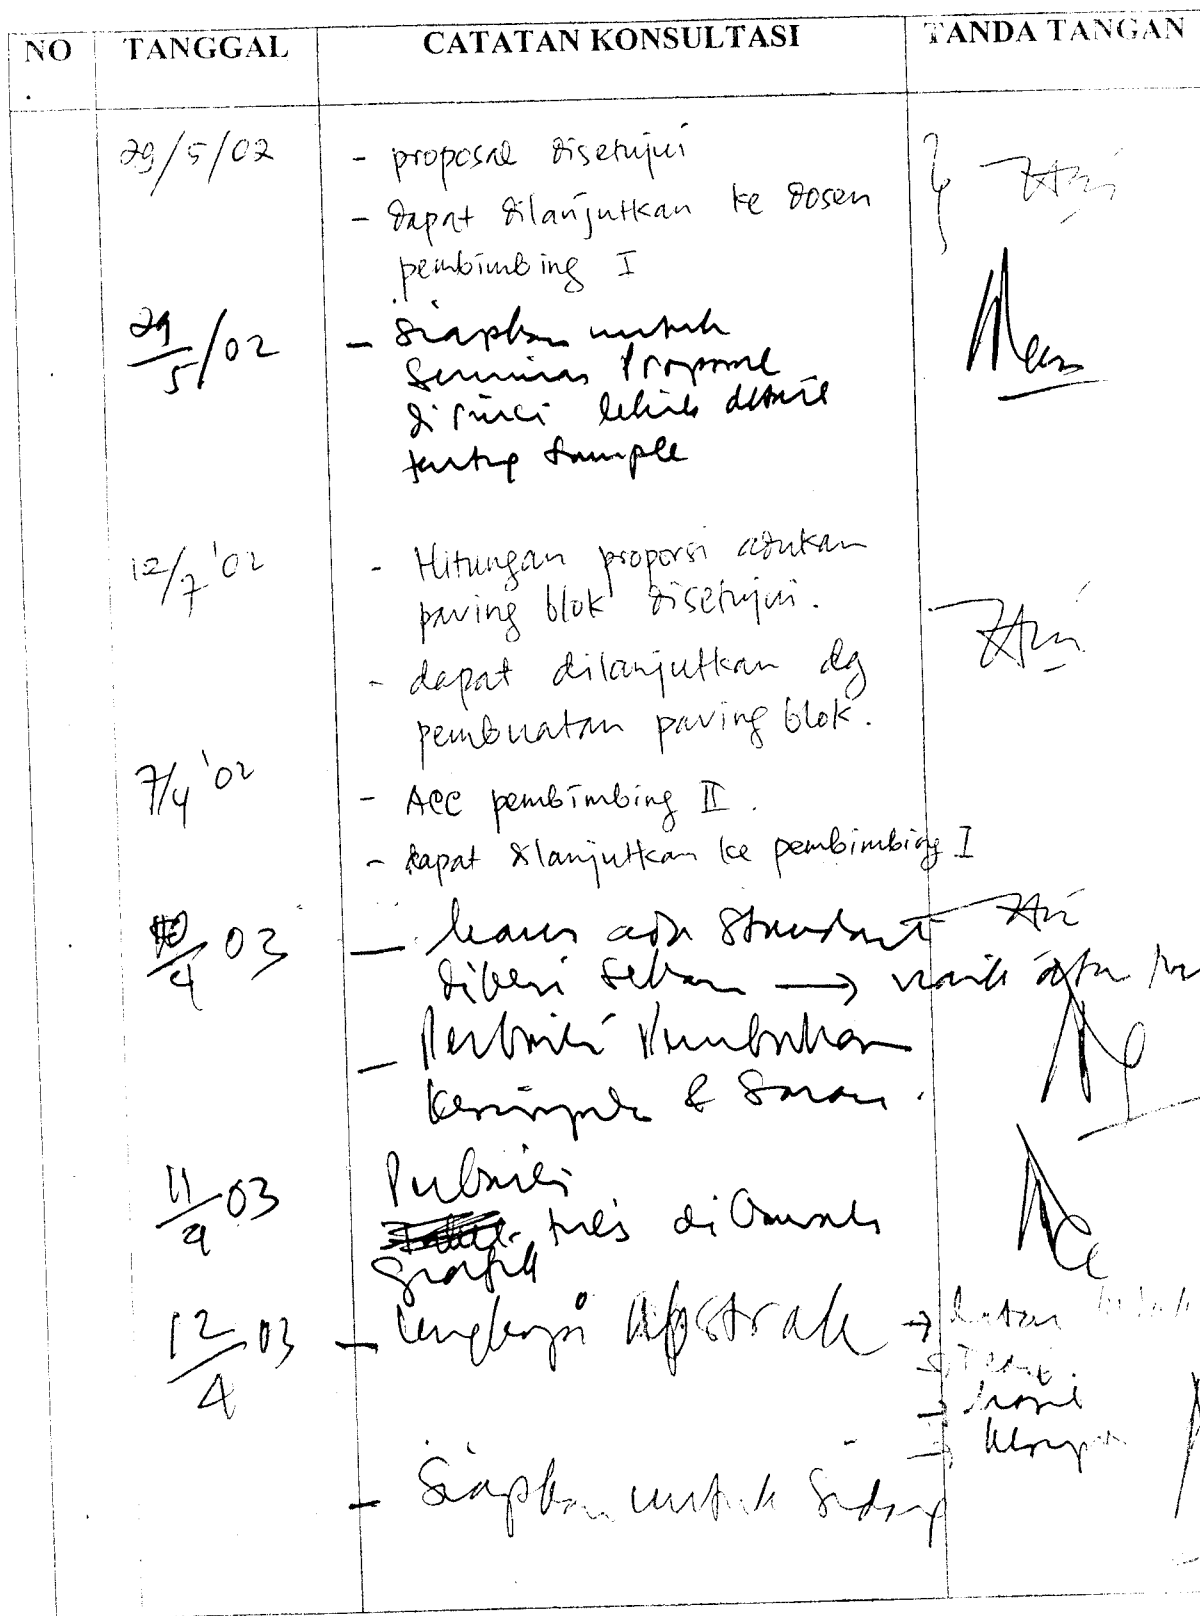 NO TANGGAL CATATAN KONSULTASI TANDA TANGAN
29/5/02 - proposal disetujui
- dapat dilanjutkan ke dosen
pembimbing I
29/5/02 - Siapkan untuk
Seminar Proposal
dirinci lebih detail
tentang Sample
12/7 '02 - Hitungan proporsi adukan
paving blok disetujui.
- dapat dilanjutkan dg
pembuatan paving blok.
7/4 '02 - ACC pembimbing II.
- dapat dilanjutkan ke pembimbing I
/4 03 - harus ada Standart
diberi → naik atau
- Perbaiki Pembahasan
Kesimpulan & Saran.
11/4 03 Perbaiki
tulis di bawah
grafik
12/4 03 - Lengkapi Abstrak → latar
→ hasil
→ Kesimpulan
- Siapkan untuk Sidang